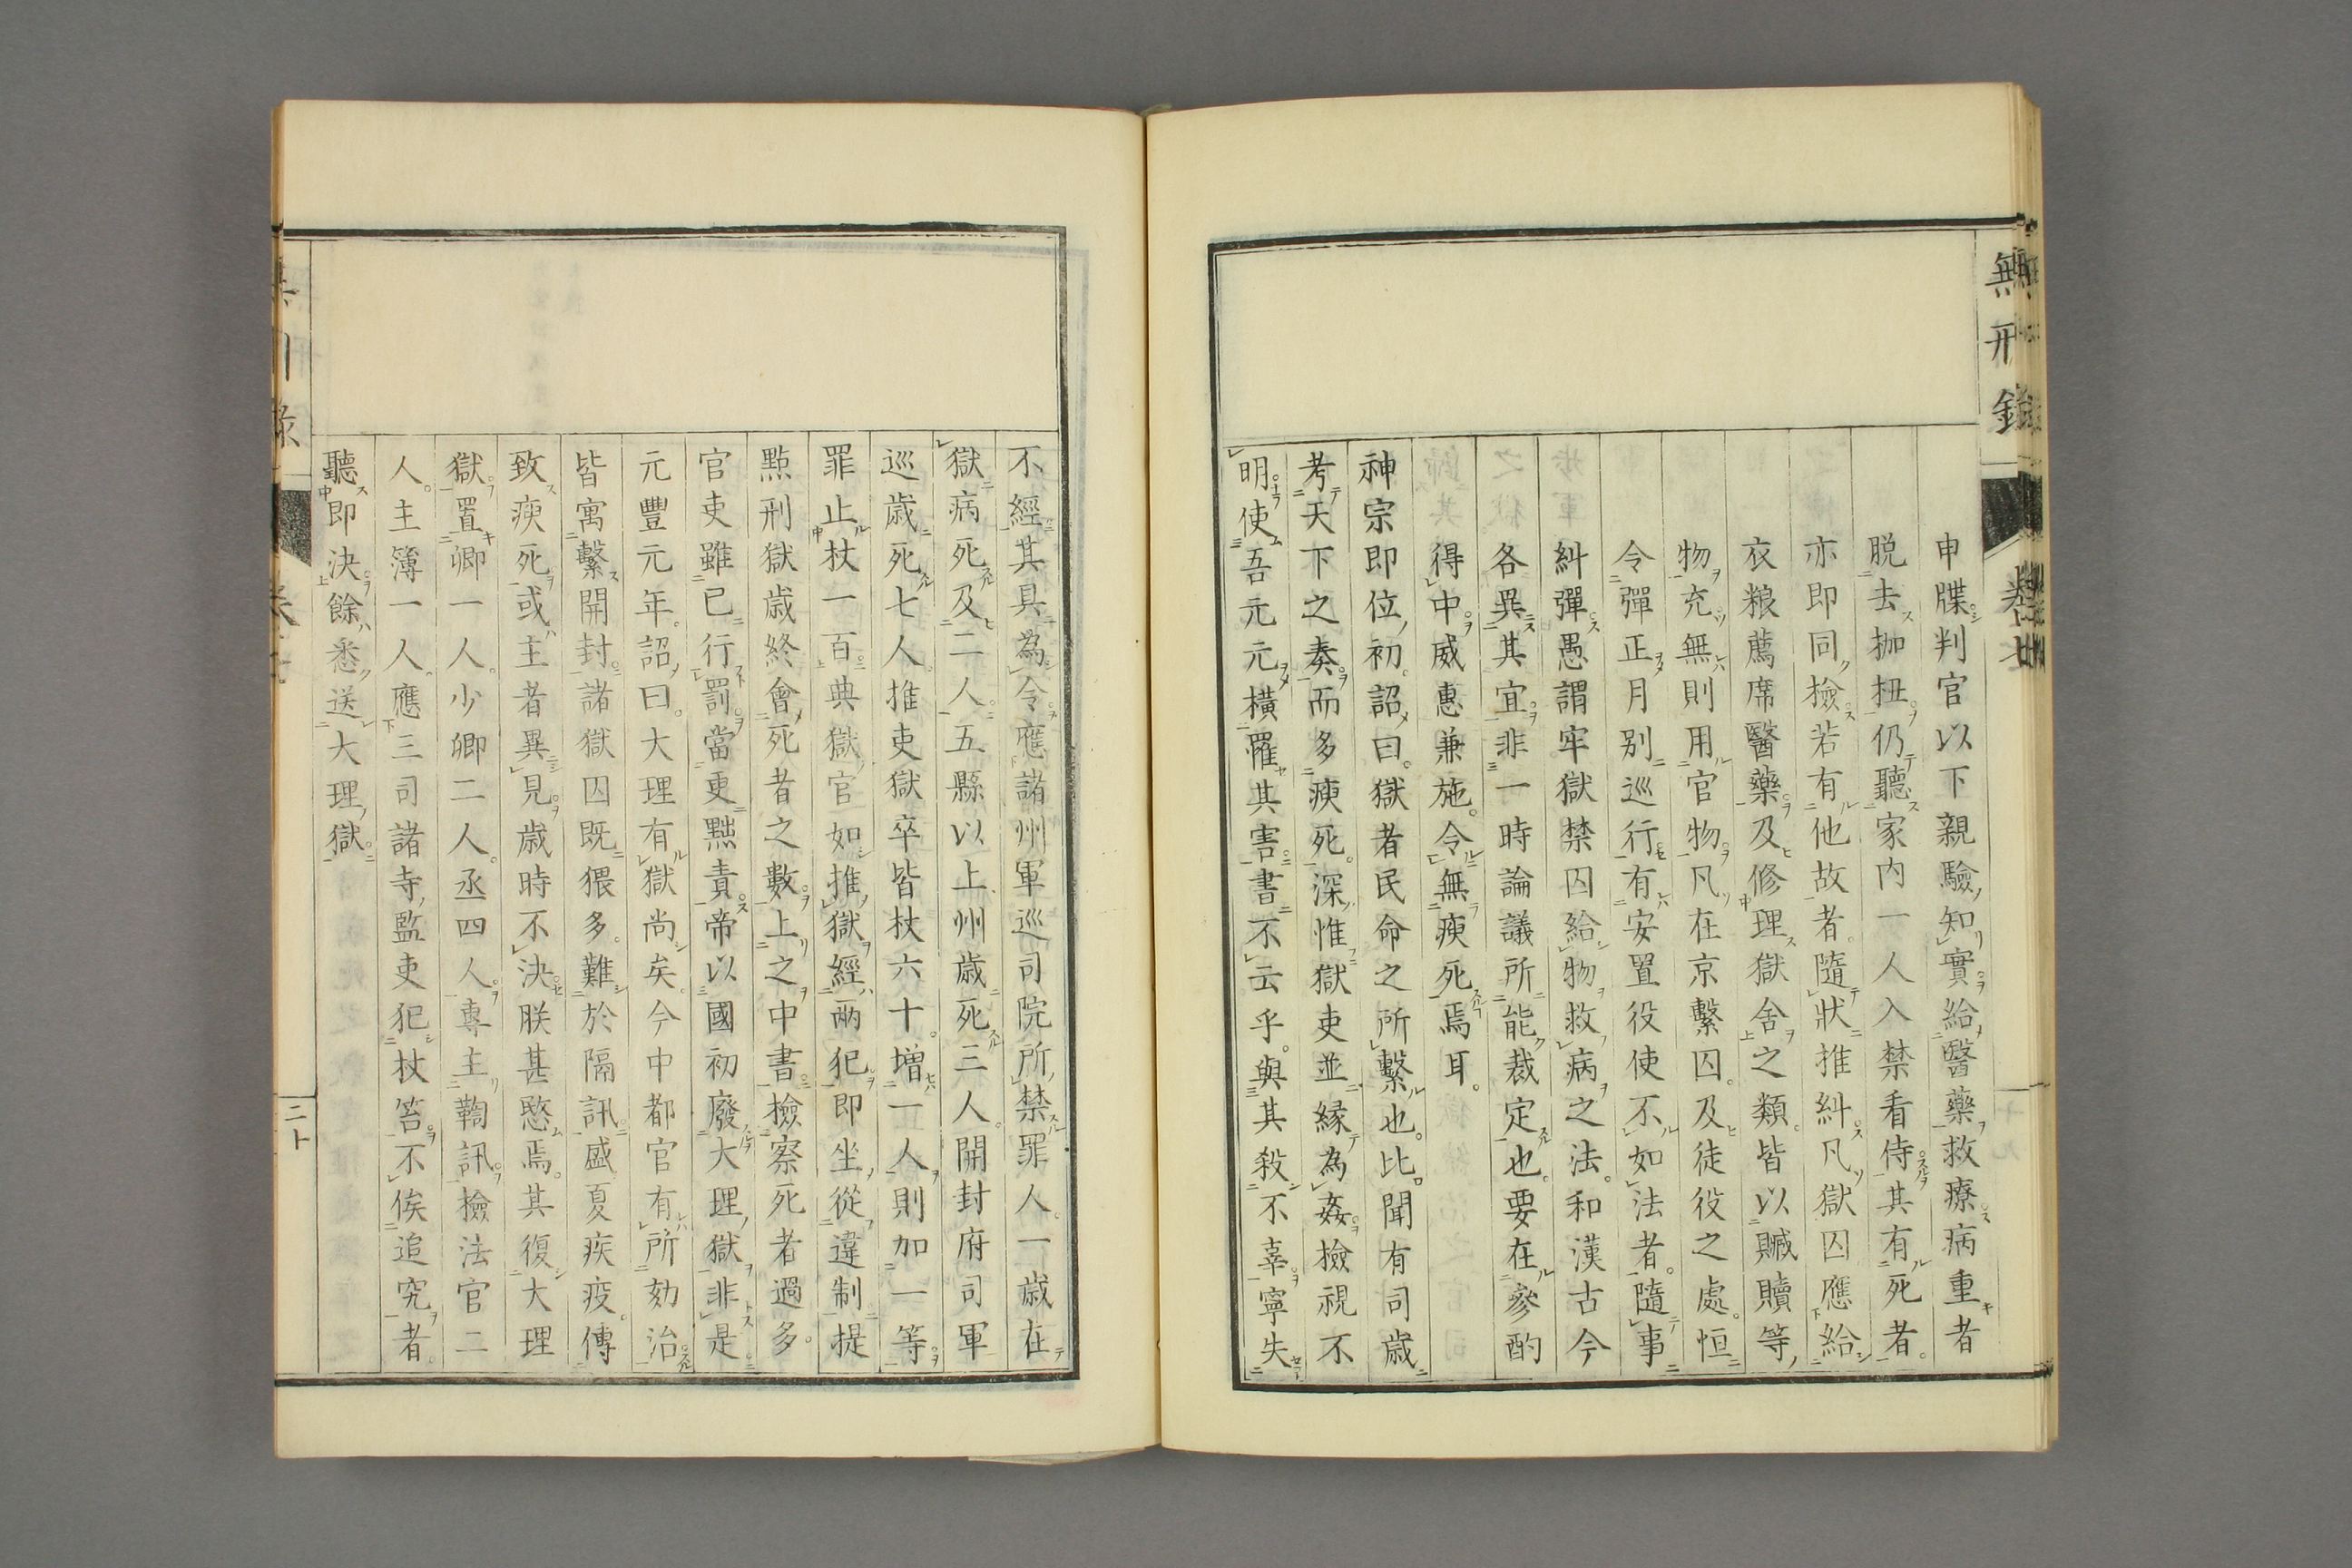 無刑録
卷十七
申牒判官以下親驗知實給醫藥救療病重者
脱去枷杻仍聽家內一人入禁看侍其有死者。
亦即同檢若有他故者。隨狀推糾凡獄囚應給
衣粮薦席醫藥及修理獄舎之類。皆以贓贖等
物充無則用官物凡在京繫囚。及徒役之處。恒
令彈正月別巡行有安置役使不如法者。隨事
糾彈愚謂牢獄禁囚給物救病之法。和漢古今
各異其宜非一時論議所能裁定也。要在參酌
得中。威惠兼施。令無瘐死焉耳。
神宗即位初。詔曰。獄者民命之所繫也。比聞有司歳
考天下之奏。而多瘐死。深惟獄吏並緣為姦。檢視不
明。使吾元元橫罹其害。書不云乎。與其殺不辜寧失
不經其具為令應諸州軍巡司院所禁罪人。一歳在
獄病死及二人。五縣以上州歳死三人。開封府司軍
巡歳死七人。推吏獄卒皆杖六十。增一人則加一等。
罪止杖一百典獄官如推獄經兩犯即坐從違制提
點刑獄歳終會死者之數上之中書檢察死者過多。
官吏雖已行罰當更黜責帝以國初廢大理獄非是
元豐元年。詔曰。大理有獄尚矣。今中都官有所劾治
皆寓繫開封諸獄囚既猥多。難於隔訊盛夏疾疫。傳
致瘐死或主者異見歳時不決朕甚愍焉。其復大理
獄置卿一人。少卿二人。丞四人。專主鞫訊檢法官二
人。主簿一人。應三司諸寺監吏犯杖笞不俟追究者。
聽即決餘悉送大理獄
二十